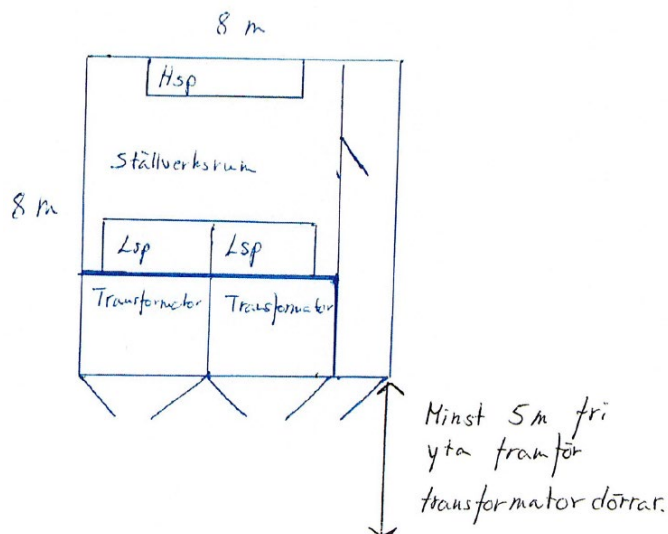 8 m
Hsp
Ställverksrum
8 m
Lsp Lsp
Transformator Transformator
Minst 5m fri
yta framför
transformator dörrar.